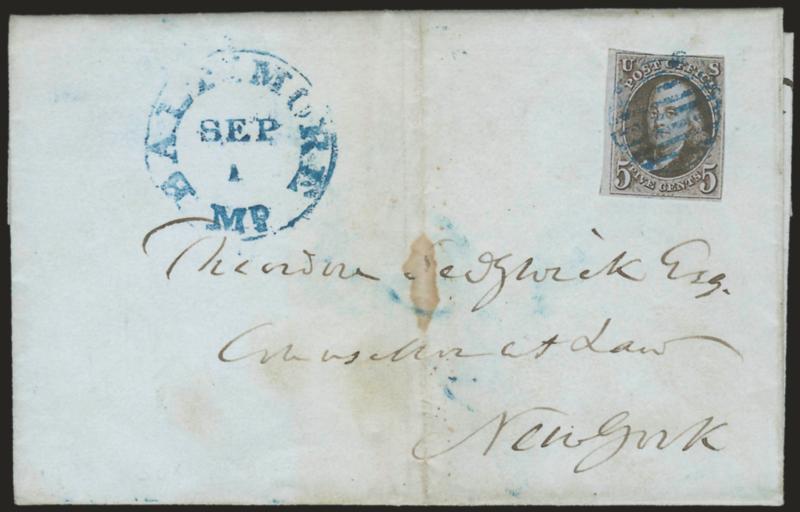 BALTIMORE
SEP
1
MD
U S
POST OFFICE
5 FIVE CENTS 5
Theodore Sedgwick Esq.
Counsellor at Law
New York